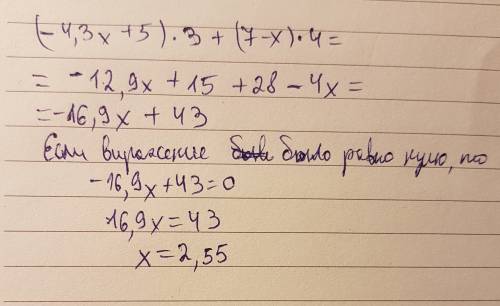 (-4,3x+5)·3+(7-x)·4=
=-12,9x+15+28-4x=
=-16,9x+43
Если выражение было равно нулю, то
-16,9x+43=0
16,9x=43
x=2,55